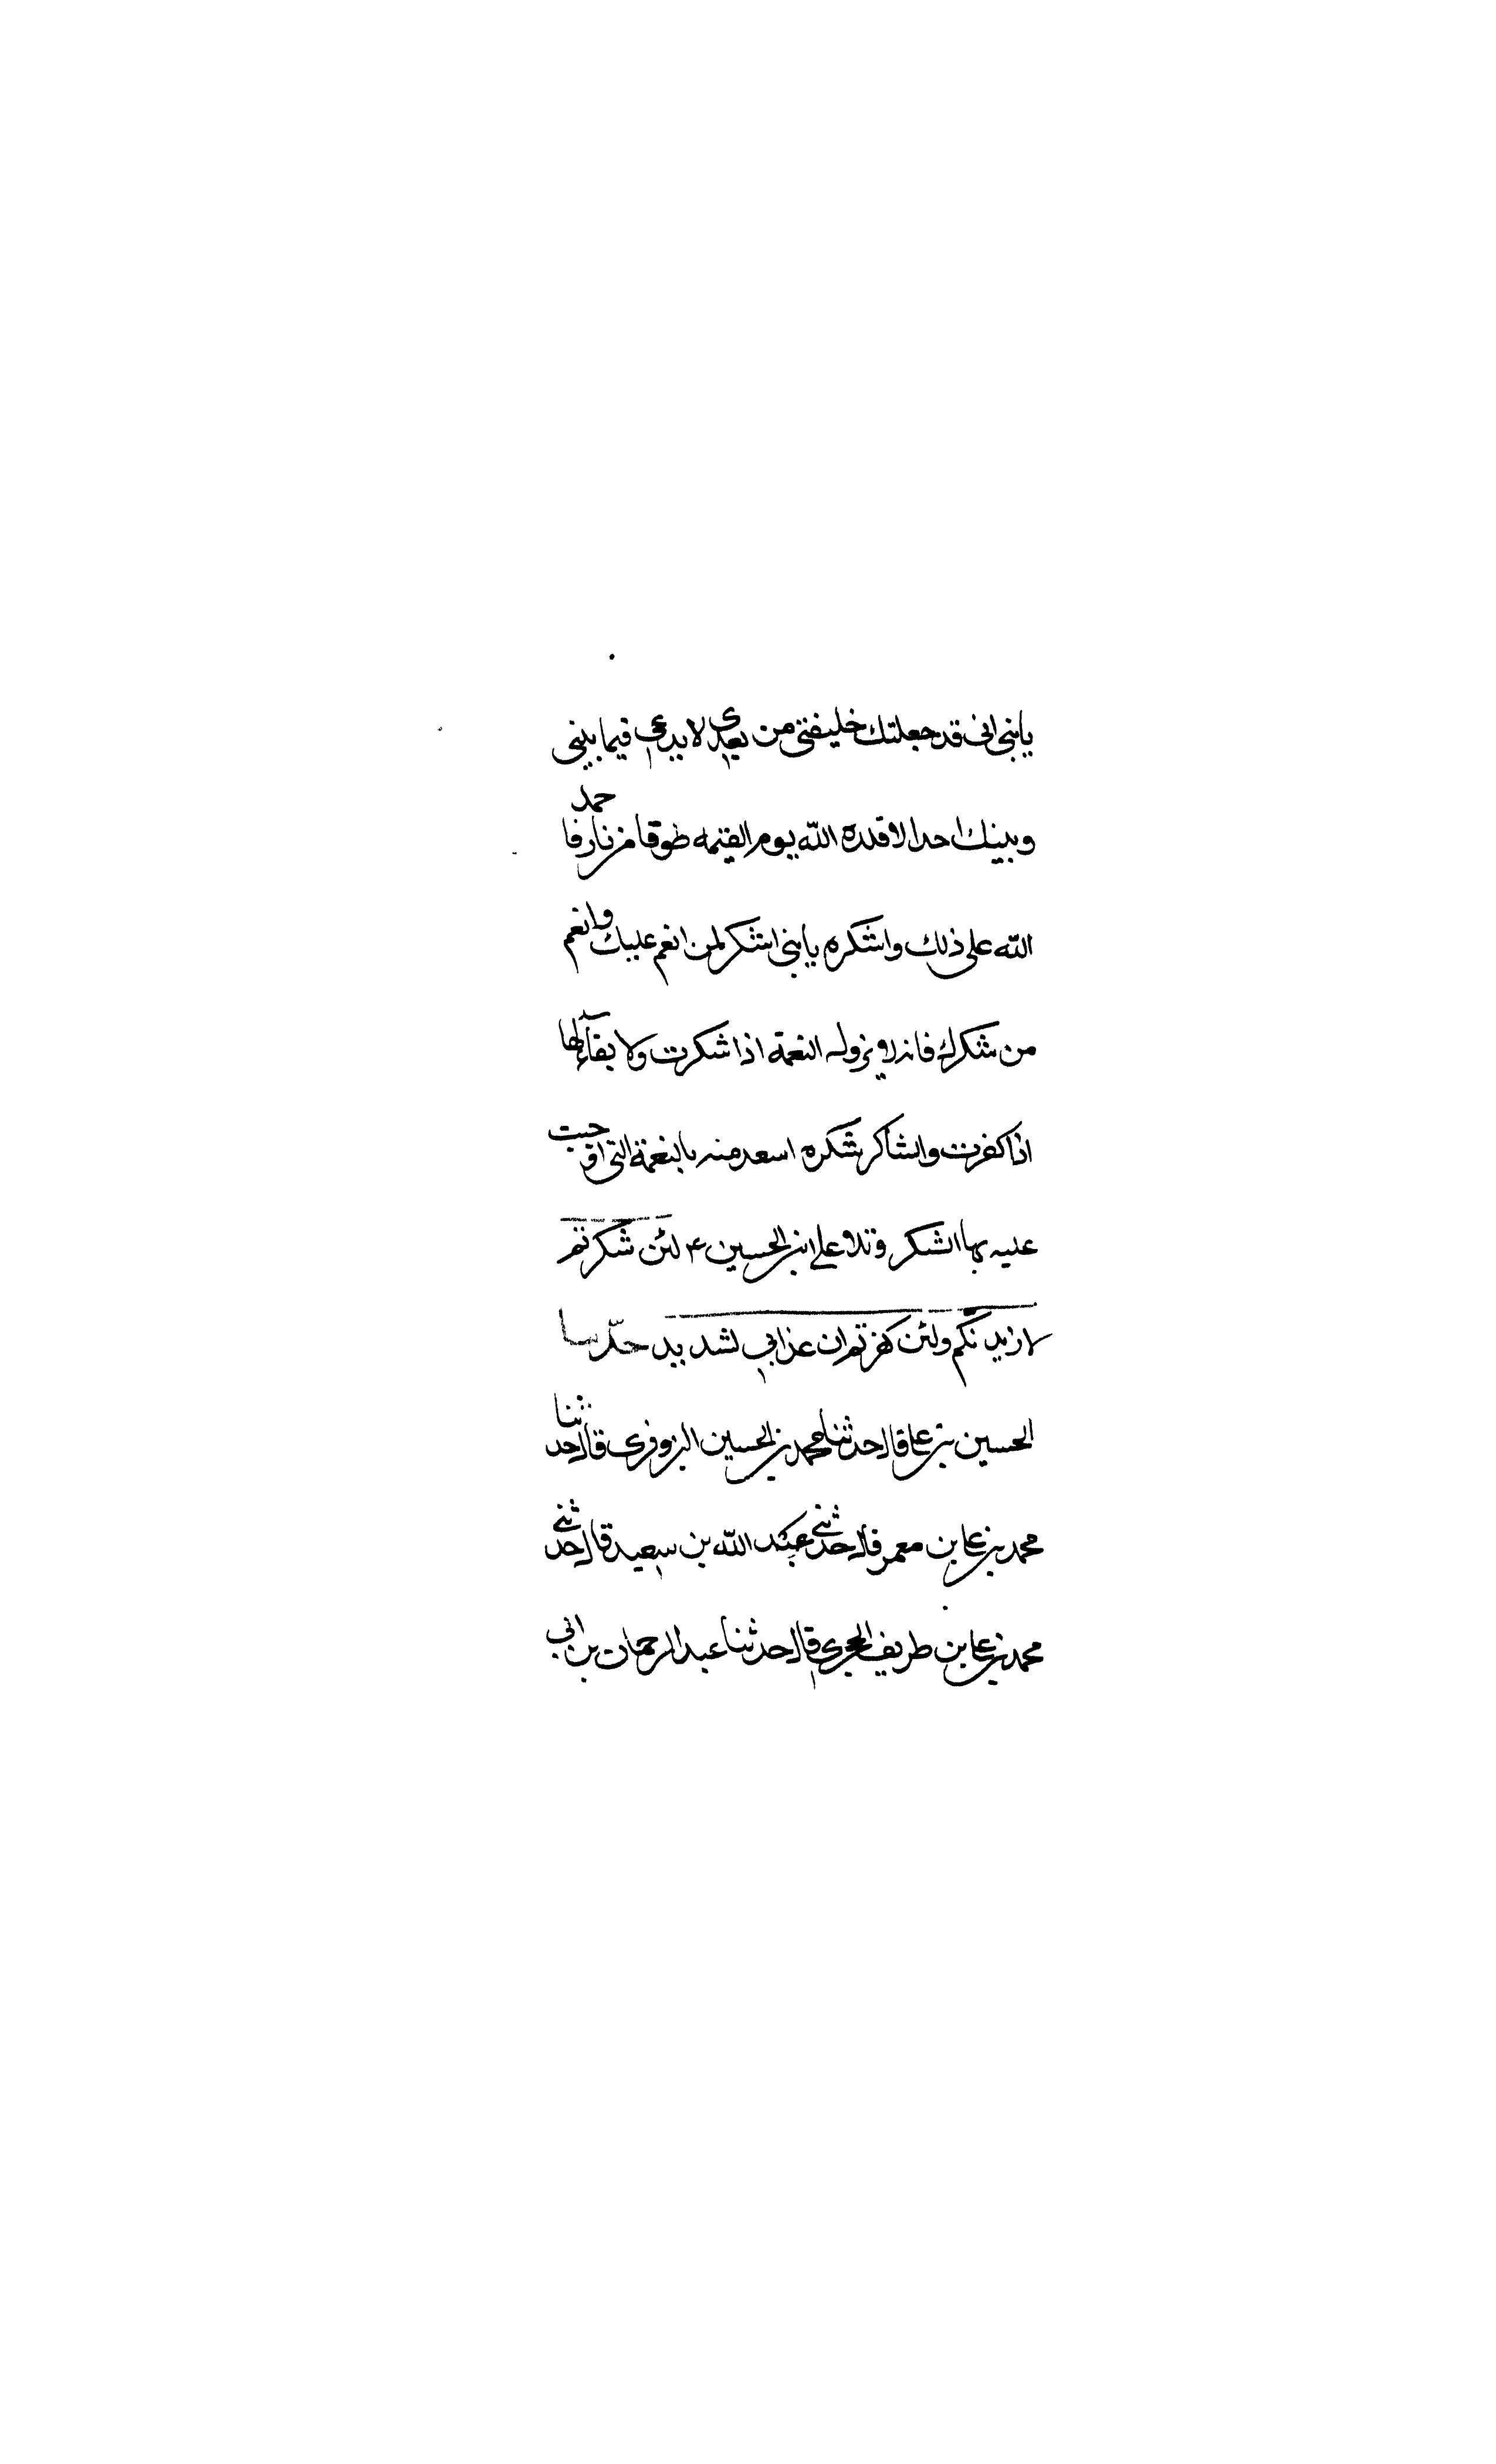 يابني اني قد جعلتك خليفتي من بعدي لا يدعي فيما بيني
وبينك احد الا قلده الله يوم القيمه طوقا من نار فاحمد
الله على ذلك واشكره يابني اشكر لمن انعم عليك وانعم
من شكرك فانه لا يزول النعمة اذا شكرت ولا بقآء لها
اذا كفرت والشاكر بشكره اسعد منه بالنعمة التي اوجبت
عليه بها الشكر وتلا علي ابن الحسين ع لئن شكرتم
لازيدنكم ولئن كفرتم ان عذابي لشديد حدّثنا
الحسين بن علي قال حدثنا محمد بن الحسين البزوفري قال حدثنا
محمد بن علي بن معمر قال حدثني عبد الله بن سعيد قال حدثني
محمد بن علي بن طريف الحجري قال حدثنا عبد الرحمان بن ابي